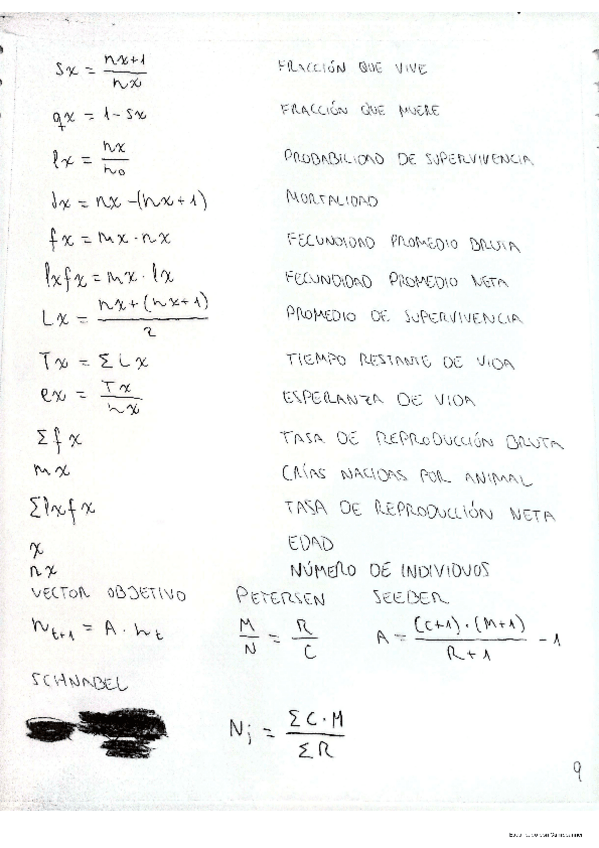 sx = nx+1/nx FRACCIÓN QUE VIVE
qx = 1-sx FRACCIÓN QUE MUERE
lx = nx/n₀ PROBABILIDAD DE SUPERVIVENCIA
dx = nx-(nx+1) MORTALIDAD
fx = mx·nx FECUNDIDAD PROMEDIO BRUTA
lxfx = mx·lx FECUNDIDAD PROMEDIO NETA
Lx = nx+(nx+1)/2 PROMEDIO DE SUPERVIVENCIA
Tx = ΣLx TIEMPO RESTANTE DE VIDA
ex = Tx/nx ESPERANZA DE VIDA
Σfx TASA DE REPRODUCCIÓN BRUTA
mx CRÍAS NACIDAS POR ANIMAL
Σlxfx TASA DE REPRODUCCIÓN NETA
x EDAD
nx NÚMERO DE INDIVIDUOS
VECTOR OBJETIVO PETERSEN SEEBER
n_{t+1} = A·n_t M/N = R/C A = (C+1)·(M+1)/R+1 - 1
SCHNABEL
Ni = ΣC·M/ΣR
9